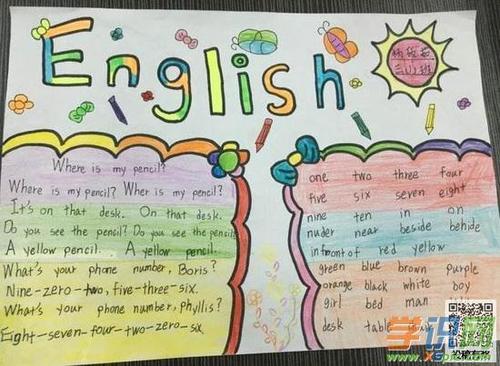 English
三(2)班
Where is my pencil?
Where is my pencil? Wher is my pencil?
It's on that desk. On that desk.
Do you see the pencil? Do you see the pencil
A yellow pencil. A yellow pencil.
What's your phone number, Boris?
Nine-zero-two, five-three-six.
What's your phone number, phyllis?
Eight-seven-four-two-zero-six
one two three four
five six seven eight
nine ten in on
nuder near beside behide
in fmont of red yellow
green blue brown purple
orange black white boy
girl bed man
desk table
学识网